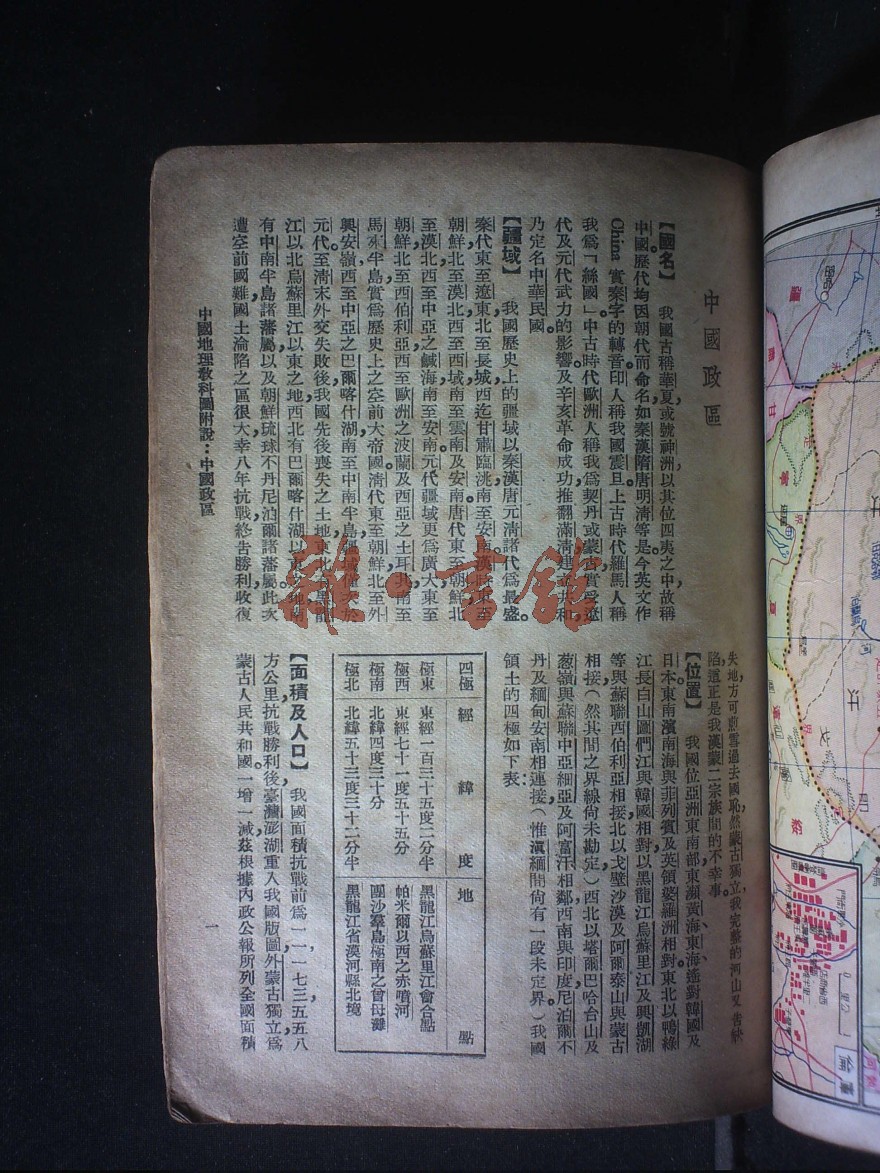 中國政區
【國名】　我國古稱華，夏或號神洲，以其位四夷之中故稱
中國。歷代均因朝代而命名如秦漢隋唐明清等是。今英文作
China 實秦字的轉音印人稱我國震旦上古時代羅馬人稱
我爲「絲國」中古時代歐洲人稱我爲契丹或蒙古實受遼
代及元代武力的影響及辛亥革命成功推翻滿清建立共和
乃定名中華民國。
【疆域】　我國歷史上的疆域以秦漢唐元清諸代爲最盛。
秦代東至遼東，北至長城，西迄甘肅臨洮，南至安南。漢時東至
朝鮮，北至漠北，西至西域，南至雲南及安南。唐代東至朝鮮，北
至漠北，西至中亞之鹹海，南至安南。元代疆域更爲廣大，東至
朝鮮，北至西伯利亞，西至歐洲之波蘭及西亞之土耳其，南至
馬來半島，實爲歷史上之空前大帝國。清代東至朝鮮，北至外
興安嶺，西至中亞之巴爾喀什湖，南至中南半島，疆域僅次於
元代。至清末外交失敗後，我國先後喪失之土地，東北有黑龍
江以北烏蘇里江以東之地，西北有巴爾喀什湖以東之地，南
有中南半島諸藩屬，以及朝鮮琉球不丹尼泊爾諸藩屬。此次
遭空前國難，國土淪陷之區很大，幸八年抗戰，終告勝利，收復
失地，方可煎雪過去國恥，然蒙古獨立，我完整的河山又告缺
陷，這正是我漢蒙二宗族間的不幸事。
【位置】　我國位亞洲東南部，東瀕黃海、東海、遙對韓國及
日本，東南濱南海，與菲列賓及英領婆羅洲相對，東北以鴨綠
江長白山圖們江與韓國相對，以黑龍江烏蘇里江及興凱湖
等與蘇聯西伯利亞相接，北以戈壁沙漠及阿爾泰山與蒙古
相接，（然其間之界線尙未勘定）西北以塔爾巴哈台山及
葱嶺與蘇聯中亞細亞及阿富汗相鄰，西南與印度，尼泊爾不
丹及緬甸安南相連接，（惟滇緬間尙有一段未定界）我國
領土的四極如下表：
四極　經緯度　地點
極東　東經一百三十五度二分半　黑龍江烏蘇里江會合點
極西　東經七十一度五十五分　帕米爾以西之赤噴河
極南　北緯四度三十分　團沙羣島極南之曾母灘
極北　北緯五十三度三十二分半　黑龍江省漠河縣北境
【面積及人口】　我國面積抗戰前爲一一，一七三，五五八
方公里，抗戰勝利後，臺灣澎湖重入我國版圖，外蒙古獨立爲
蒙古人民共和國。一增一減，茲根據內政公報所列全國面積
中國地理敎科圖附說：中國政區
一
雜·書館